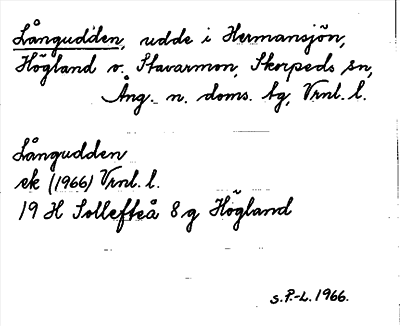 Långudden, udde i Hermansjön,
Högland o. Stavarmon, Skorpeds sn,
Ång. n. doms. tg, Vrnl. l.
Långudden
ek (1966) Vrnl. l.
19 H Sollefteå 8 g Högland
s. P.-L. 1966.